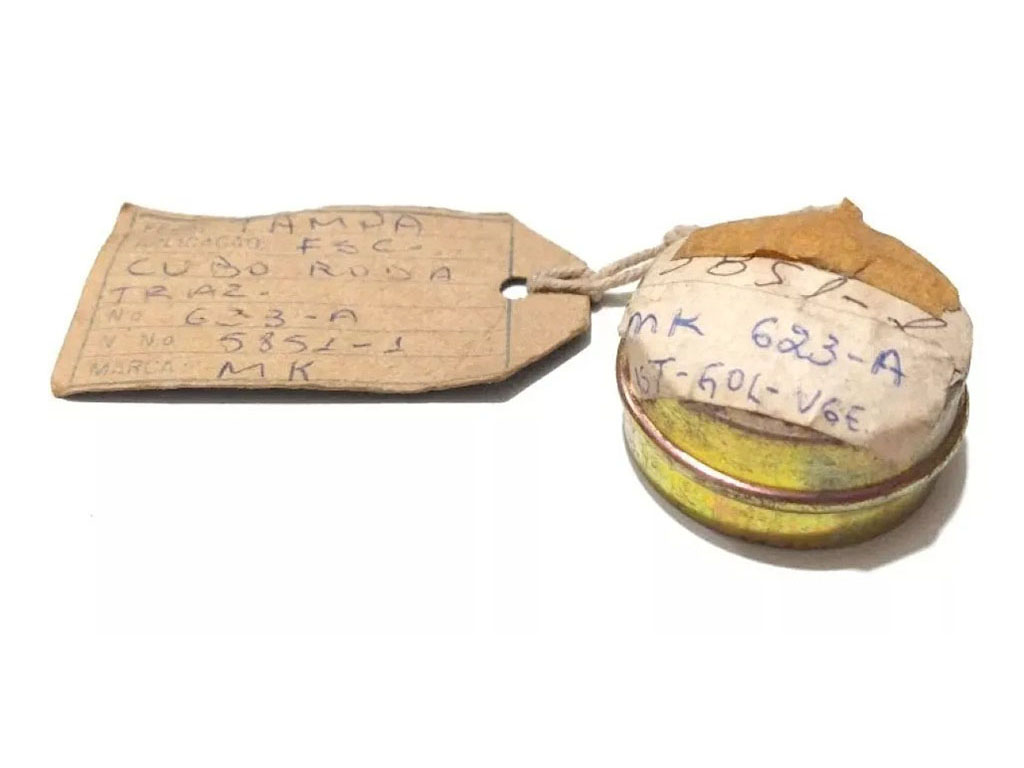 TAMPA
APLICAÇÃO: FSC-
CUBO RODA
TRAZ-
No 623-A
N No 5851-1
MARCA: MK
5851-1
MK 623-A
GOL-VGE.